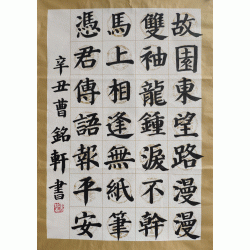 故園東望路漫漫
雙袖龍鍾淚不幹
馬上相逢無紙筆
憑君傳語報平安
辛丑曹銘軒書